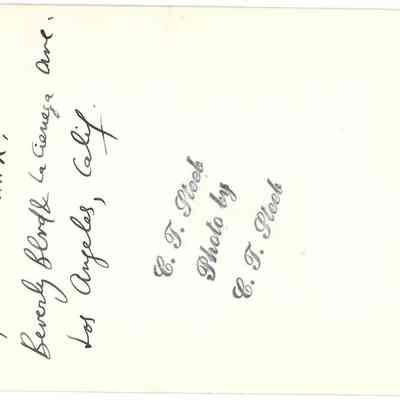 Beverly Blvd & La Cienega Ave.
Los Angeles, Calif.
C. T. Stoeb
Photo by
C. T. Stoeb